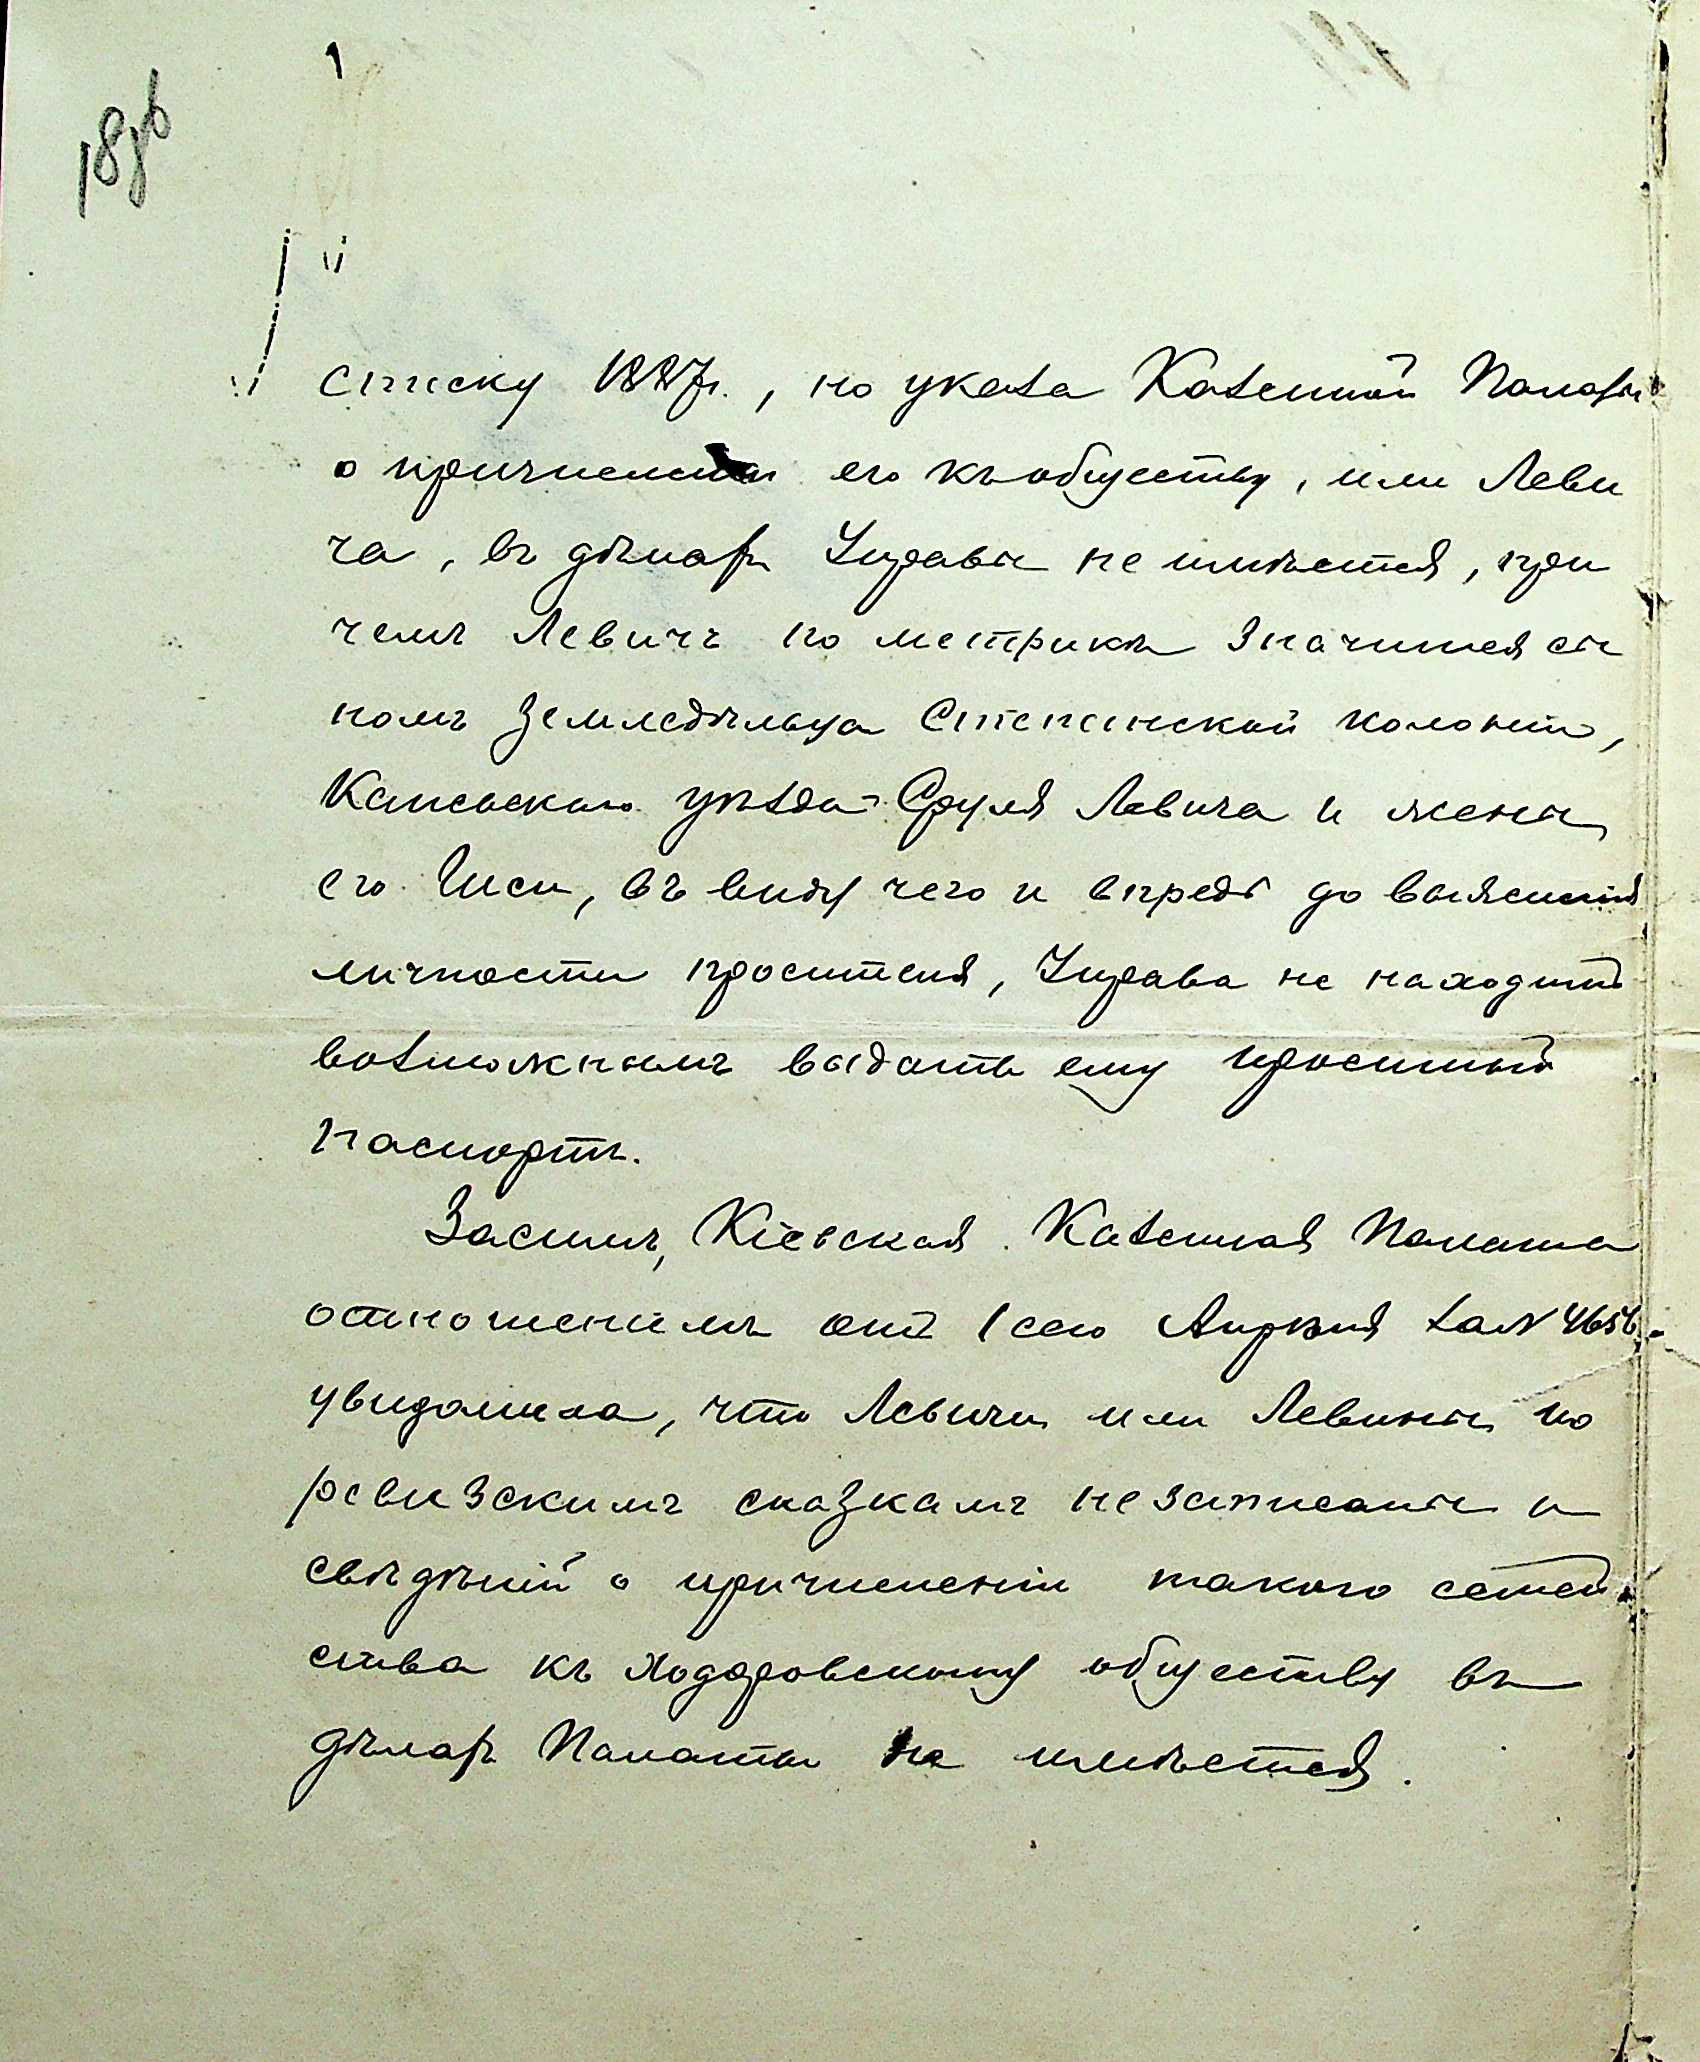 списку 1887г., но указа Казенной Палаты
о причисленіи его къ обществу, или Леви
ча, въ дѣлахъ Управы не имѣется, при
чемъ Левичъ по метрикѣ значится сы
номъ земледѣльца Степанской колоніи,
Каневскаго уѣзда Сруля Левича и жены
его Шси, въ виду чего и впредь до выясненія
личности просителя, Управа не находитъ
возможнымъ выдать ему просимый
паспортъ.
Засимъ, Кіевская Казенная Палата
отношеніемъ отъ 1 сего Апрѣля за № 4656
увидомила, что Левичи или Левины по
ревизскимъ сказкамъ не записаны и
свѣдѣній о причисленіи такого семей
ства къ Ходоровскому обществу въ
дѣлахъ Палаты не имѣется.